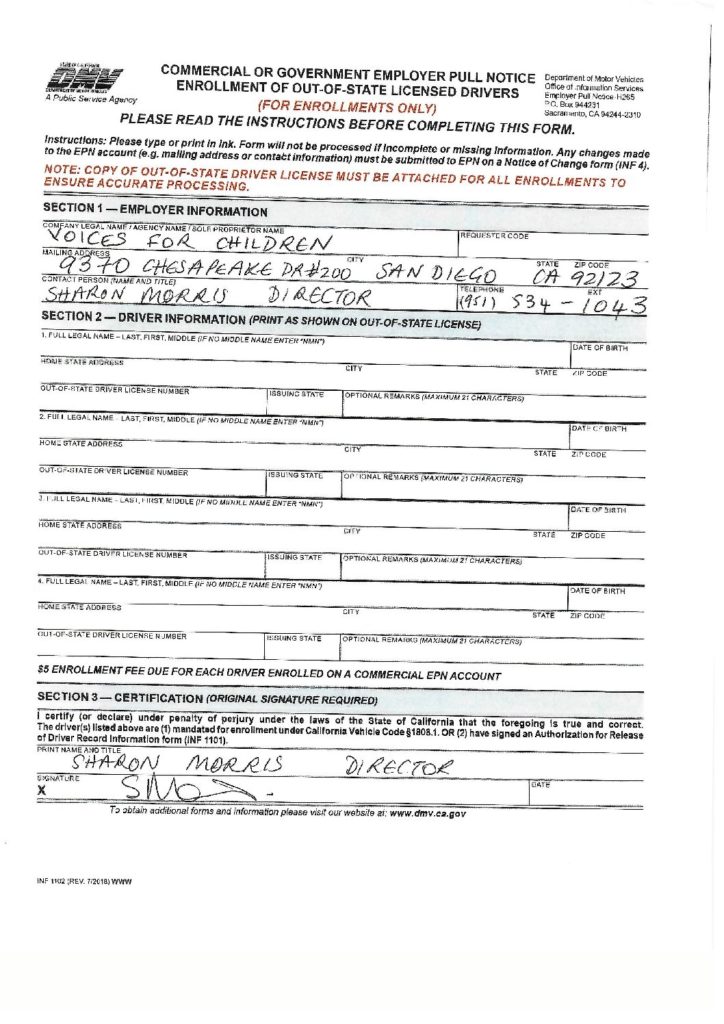 STATE OF CALIFORNIA
DMV
DEPARTMENT OF MOTOR VEHICLES
A Public Service Agency
COMMERCIAL OR GOVERNMENT EMPLOYER PULL NOTICE
ENROLLMENT OF OUT-OF-STATE LICENSED DRIVERS
(FOR ENROLLMENTS ONLY)
Department of Motor Vehicles
Office of Information Services
Employer Pull Notice-H265
P.O. Box 944231
Sacramento, CA 94244-2310
PLEASE READ THE INSTRUCTIONS BEFORE COMPLETING THIS FORM.
Instructions: Please type or print in ink. Form will not be processed if incomplete or missing information. Any changes made
to the EPN account (e.g. mailing address or contact information) must be submitted to EPN on a Notice of Change form (INF 4).
NOTE: COPY OF OUT-OF-STATE DRIVER LICENSE MUST BE ATTACHED FOR ALL ENROLLMENTS TO
ENSURE ACCURATE PROCESSING.
SECTION 1 — EMPLOYER INFORMATION
COMPANY LEGAL NAME / AGENCY NAME / SOLE PROPRIETOR NAME REQUESTER CODE
VOICES FOR CHILDREN
MAILING ADDRESS CITY STATE ZIP CODE
9370 CHESAPEAKE DR #200 SAN DIEGO CA 92123
CONTACT PERSON (NAME AND TITLE) TELEPHONE EXT
SHARON MORRIS DIRECTOR (951) 534-1043
SECTION 2 — DRIVER INFORMATION (PRINT AS SHOWN ON OUT-OF-STATE LICENSE)
1. FULL LEGAL NAME – LAST, FIRST, MIDDLE (IF NO MIDDLE NAME ENTER "NMN") DATE OF BIRTH
HOME STATE ADDRESS CITY STATE ZIP CODE
OUT-OF-STATE DRIVER LICENSE NUMBER ISSUING STATE OPTIONAL REMARKS (MAXIMUM 21 CHARACTERS)
2. FULL LEGAL NAME – LAST, FIRST, MIDDLE (IF NO MIDDLE NAME ENTER "NMN") DATE OF BIRTH
HOME STATE ADDRESS CITY STATE ZIP CODE
OUT-OF-STATE DRIVER LICENSE NUMBER ISSUING STATE OPTIONAL REMARKS (MAXIMUM 21 CHARACTERS)
3. FULL LEGAL NAME – LAST, FIRST, MIDDLE (IF NO MIDDLE NAME ENTER "NMN") DATE OF BIRTH
HOME STATE ADDRESS CITY STATE ZIP CODE
OUT-OF-STATE DRIVER LICENSE NUMBER ISSUING STATE OPTIONAL REMARKS (MAXIMUM 21 CHARACTERS)
4. FULL LEGAL NAME – LAST, FIRST, MIDDLE (IF NO MIDDLE NAME ENTER "NMN") DATE OF BIRTH
HOME STATE ADDRESS CITY STATE ZIP CODE
OUT-OF-STATE DRIVER LICENSE NUMBER ISSUING STATE OPTIONAL REMARKS (MAXIMUM 21 CHARACTERS)
$5 ENROLLMENT FEE DUE FOR EACH DRIVER ENROLLED ON A COMMERCIAL EPN ACCOUNT
SECTION 3 — CERTIFICATION (ORIGINAL SIGNATURE REQUIRED)
I certify (or declare) under penalty of perjury under the laws of the State of California that the foregoing is true and correct.
The driver(s) listed above are (1) mandated for enrollment under California Vehicle Code §1808.1. OR (2) have signed an Authorization for Release
of Driver Record Information form (INF 1101).
PRINT NAME AND TITLE
SHARON MORRIS DIRECTOR
SIGNATURE DATE
X
To obtain additional forms and information please visit our website at: www.dmv.ca.gov
INF 1102 (REV. 7/2018) WWW